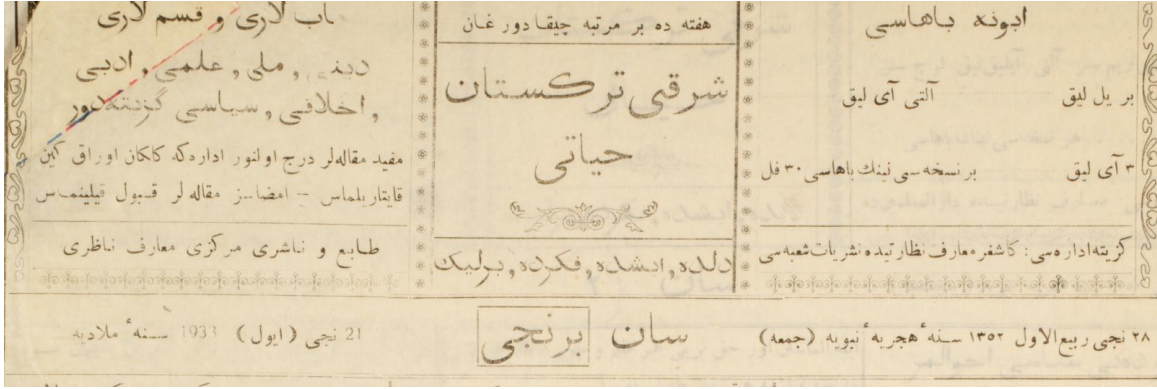 ابونه باهاسى
بر يل ليق آلتى آى ليق
۳ آى ليق بر نسخه سى نينك باهاسى ۳۰ فل
گزيته اداره سى: كاشغر معارف نظارتيده نشريات شعبه سى
هفته ده بر مرتبه چيقادورغان
شرقى تركستان
حياتى
دلده, ايشده, فكرده, برليك
باب لارى و قسم لارى
دينى, ملى, علمى, ادبى
, اخلاقى, سياسى گزيته دور
مفيد مقاله لر درج اولنور اداره كه كلكان اوراق كين
قايتاريلماس – امضاسز مقاله لر قبول قيلينمس
طابع و ناشرى مركزى معارف ناظرى
۲۸ نجى ربيع الاول ۱۳۵۲ سنۀ هجريۀ نبويه (جمعه) سان برنجى 21 نجى (ايول) 1933 سنۀ ملاديه